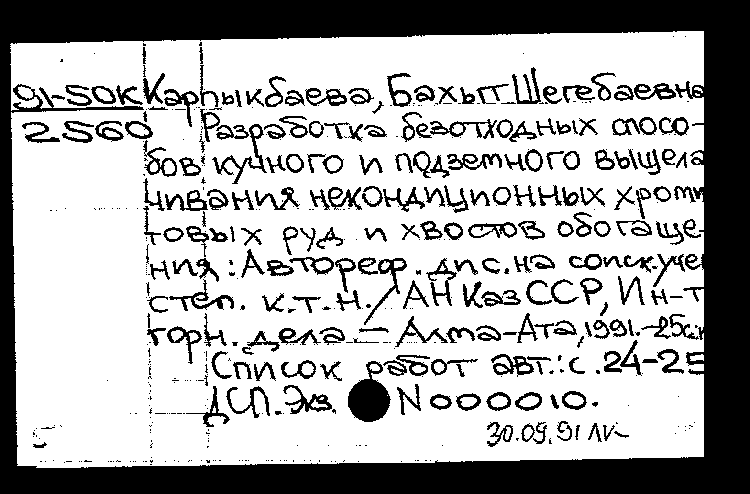 91-50К Карпыкбаева, Бахыт Шегебаевна
2560 Разработка безотходных спосо-
бов кучного и подземного выщела
чивания некондиционных хроми
товых руд и хвостов обогаще-
ния : Автореф. дис. на соиск. учен
степ. к.т.н. / АН КазССР, Ин-т
горн. дела. — Алма-Ата, 1991. - 25с.
Список работ авт.: с. 24-25
ДСП. Экз. N 000010.
30.09.91 ЛК